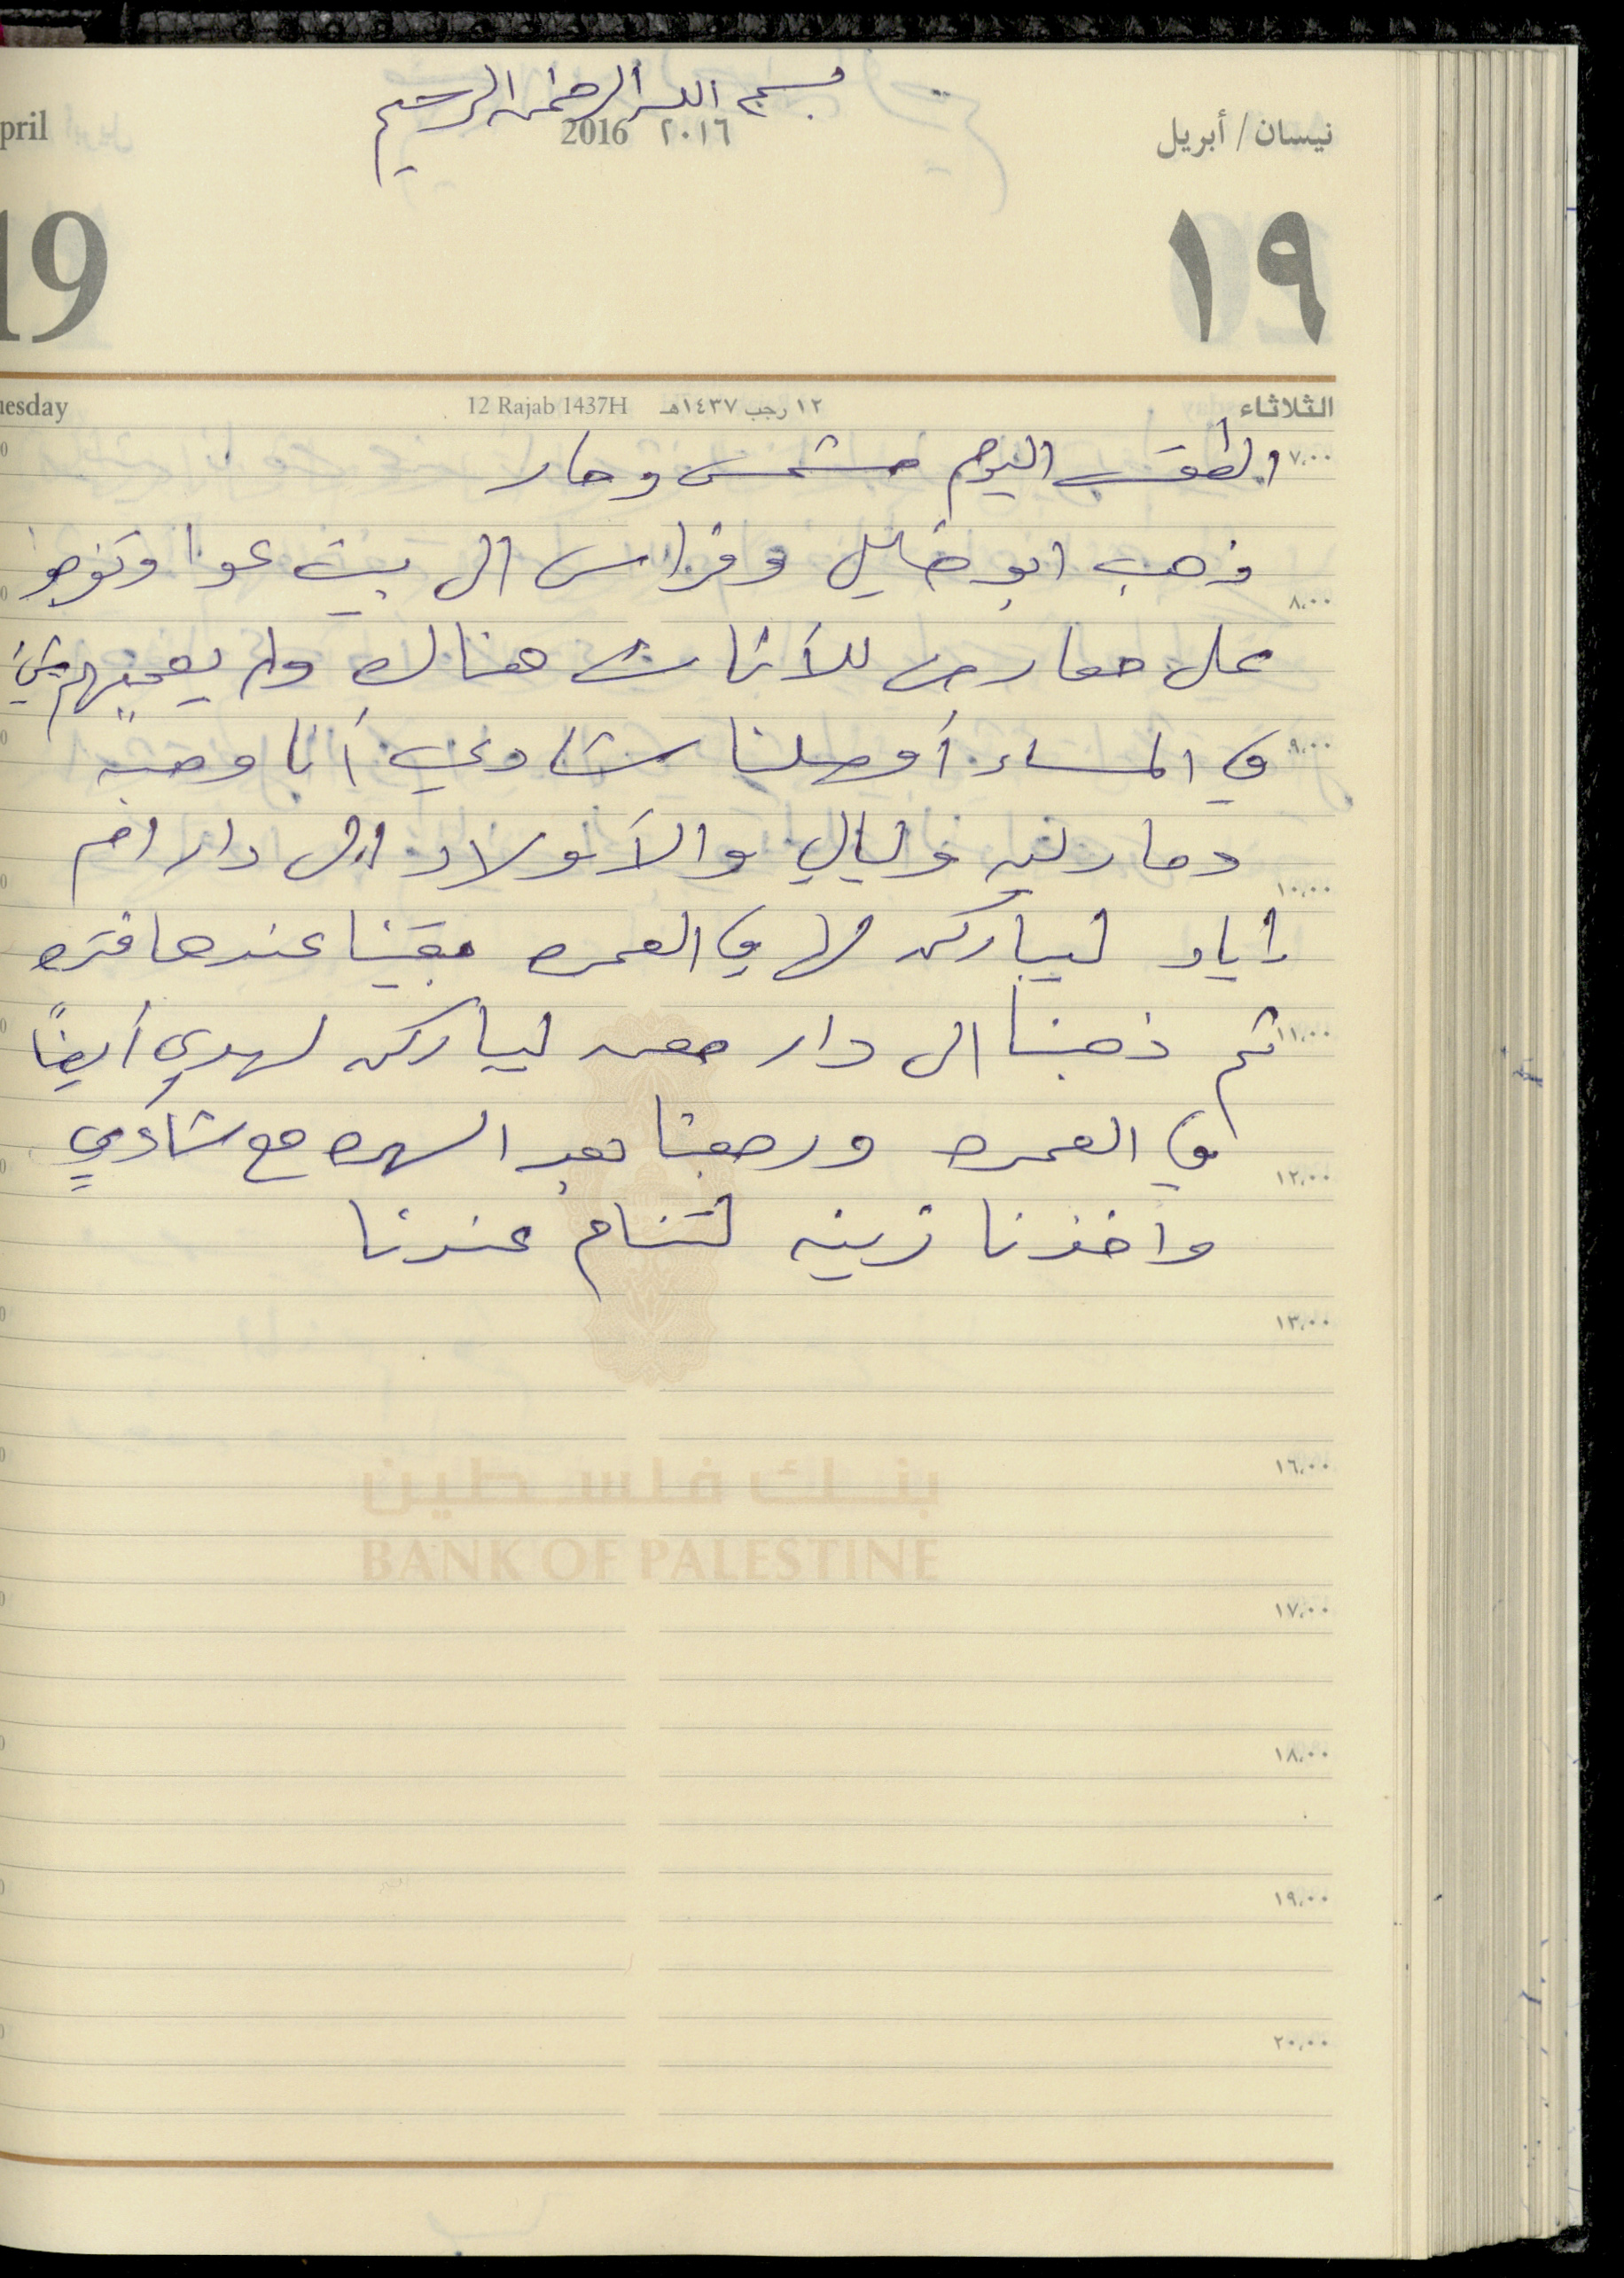 بسم الله الرحمن الرحيم
نيسان / أبريل
٢٠١٦ 2016
pril
١٩
19
الثلاثاء
١٢ رجب ١٤٣٧هـ 12 Rajab 1437H
uesday
٧،٠٠
الطقس اليوم مشمس وحار
ذهب ابو خليل وفراس الى بيت عوا وتفرجو
٨،٠٠
على معارض للأثاث هناك ولم يعجبهم شيئ
٩،٠٠
في المساء أوصلنا شادي أنا وحبه
ومارليه وليالي والأولاد الى دار ام
١٠،٠٠
اياد ليبارك لها في العمره بقينا عندها فتره
١١،٠٠
ثم ذهبنا الى دار معن ليبارك لهدى أيضاً
في العمره ورجعنا بعد السهره مع شادي
١٢،٠٠
واخذنا زينه لتنام عندنا
١٣،٠٠
١٦،٠٠
بنك فلسطين
BANK OF PALESTINE
١٧،٠٠
١٨،٠٠
١٩،٠٠
٢٠،٠٠